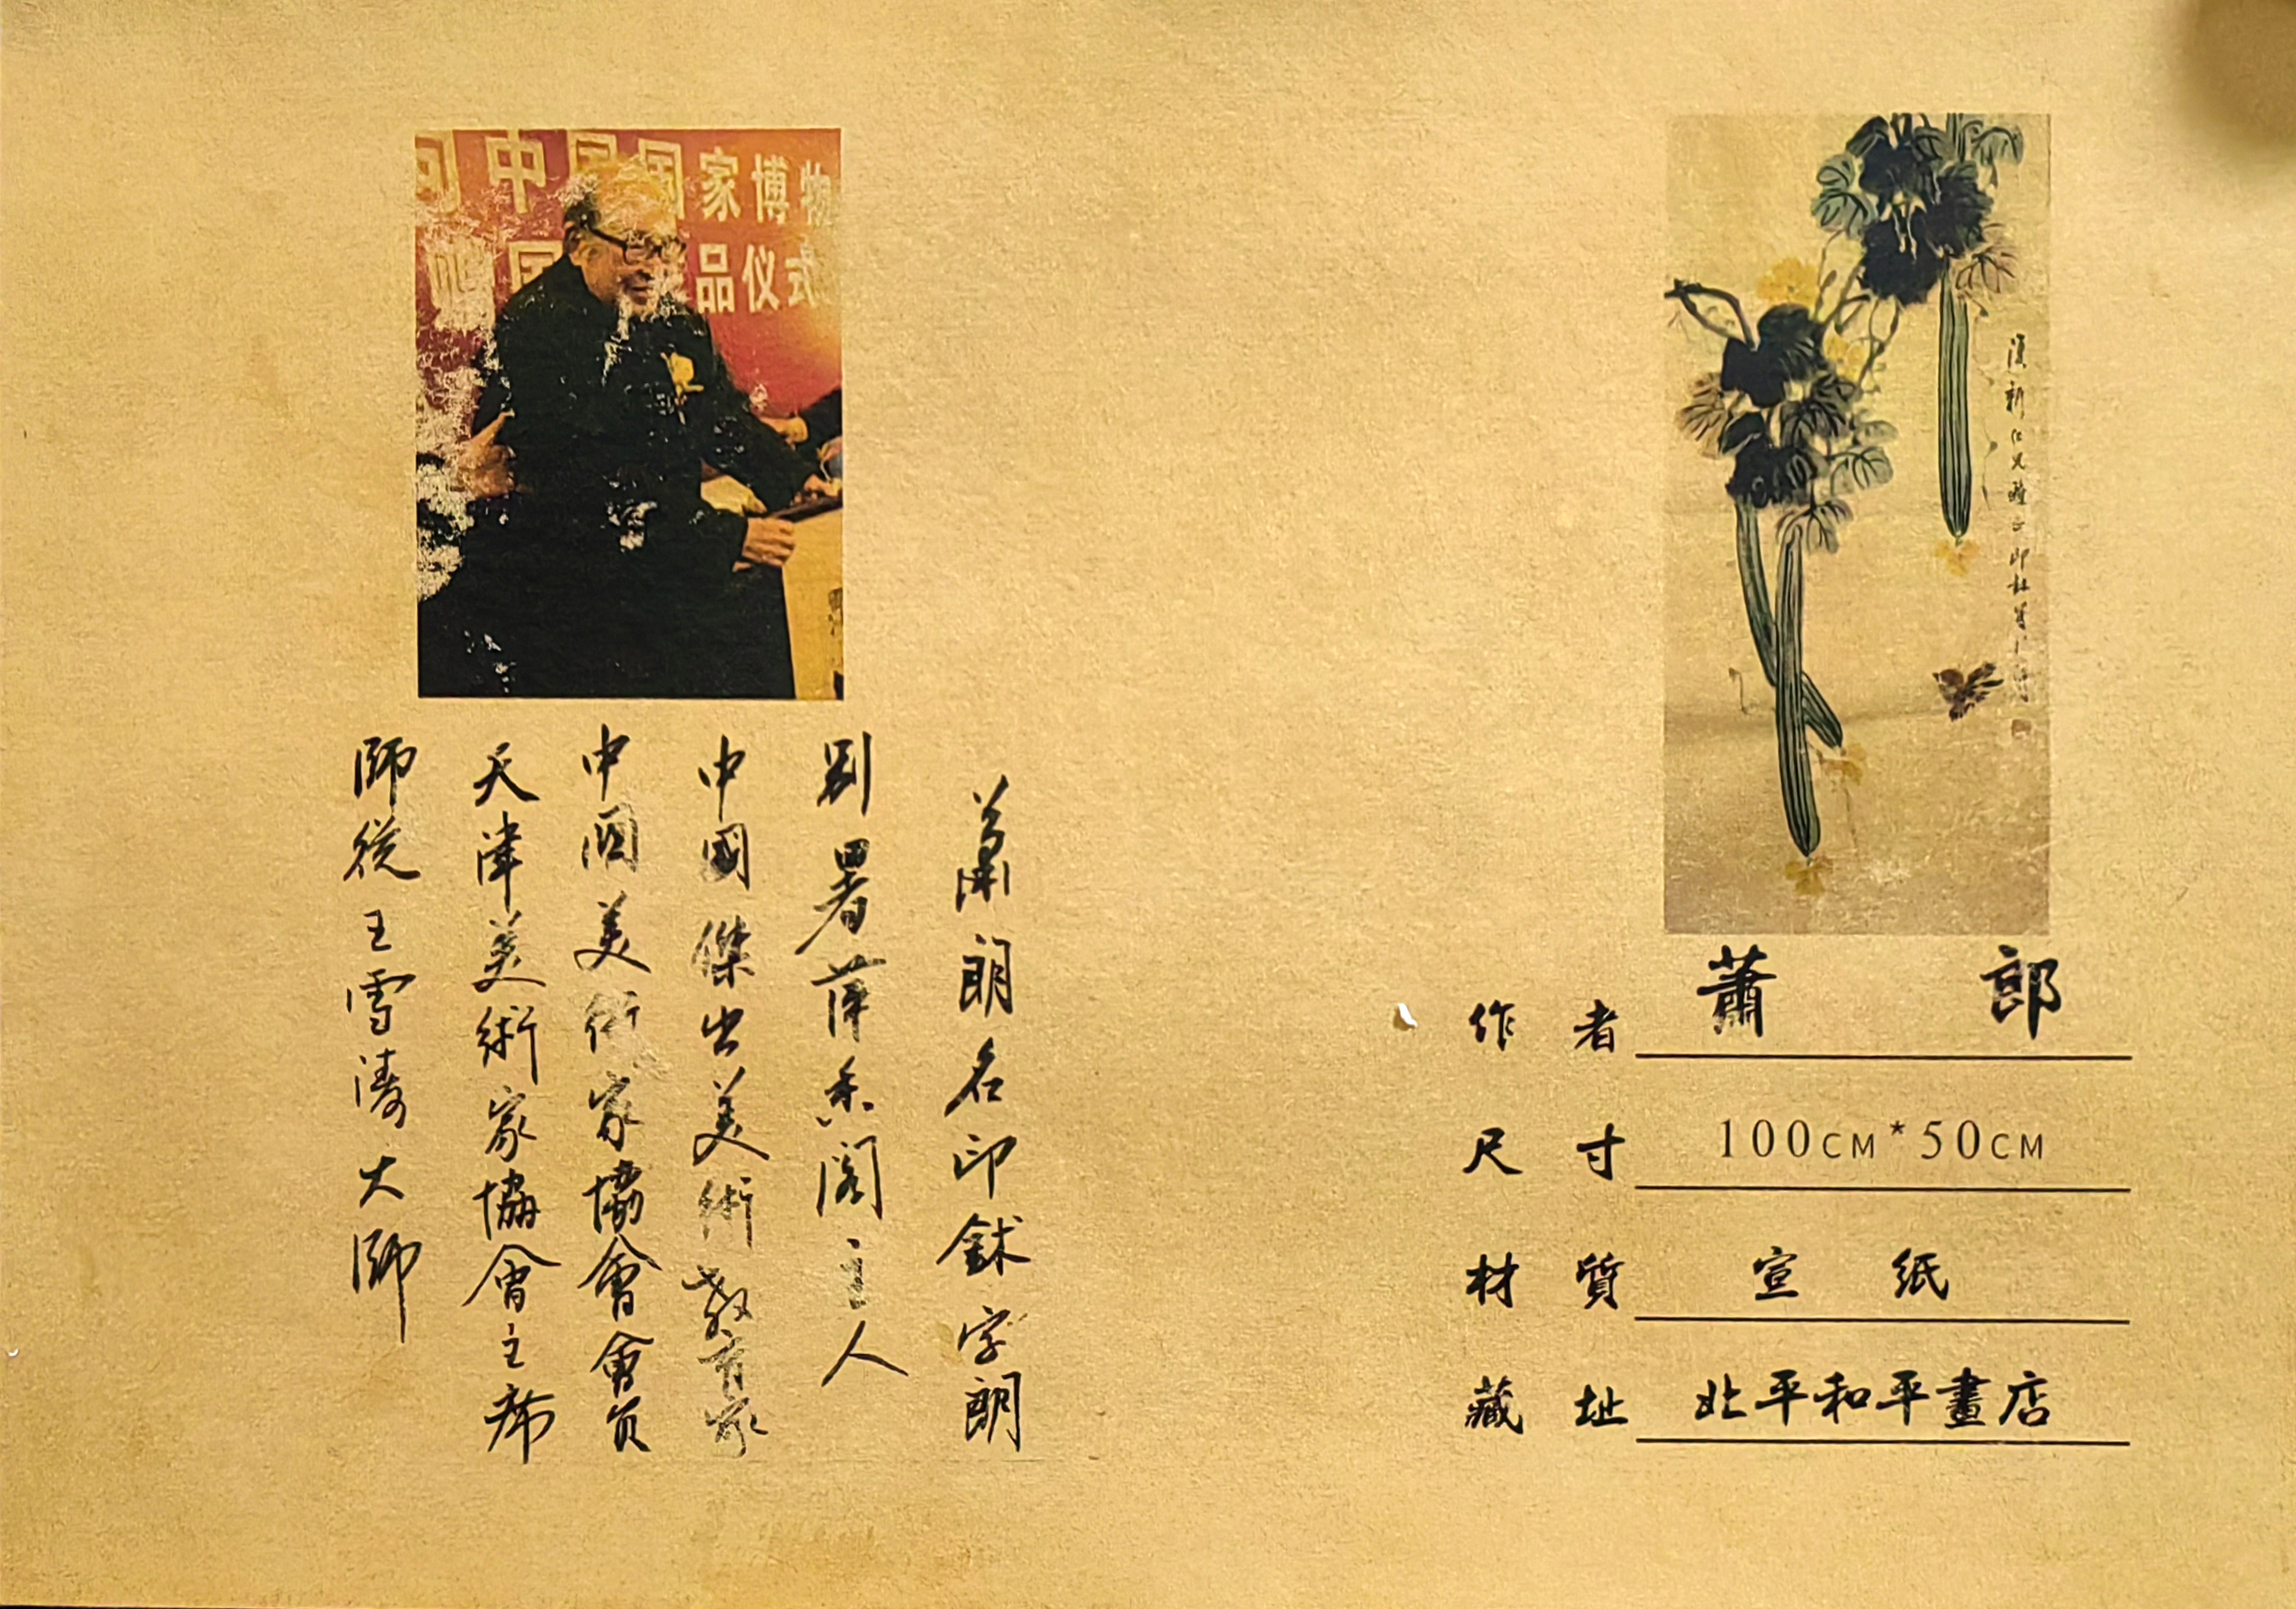 中国国家博物
品仪式
蕭朗名印鉥字朗
別署萍香閣主人
中國傑出美術教育家
中國美術家協會會員
天津美術家協會主席
師從王雪濤大師
漢新仁兄
正
作者 蕭郎
尺寸 100CM*50CM
材質 宣紙
藏址 北平和平畫店